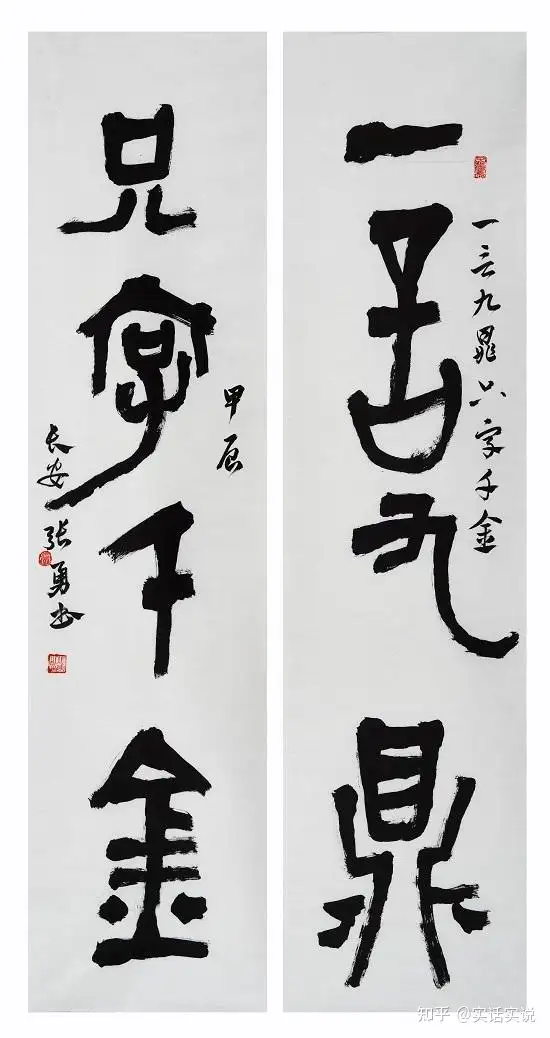 一言九鼎
一言九鼎只字千金
只字千金
甲辰
长安张勇书
知乎 @实话实说